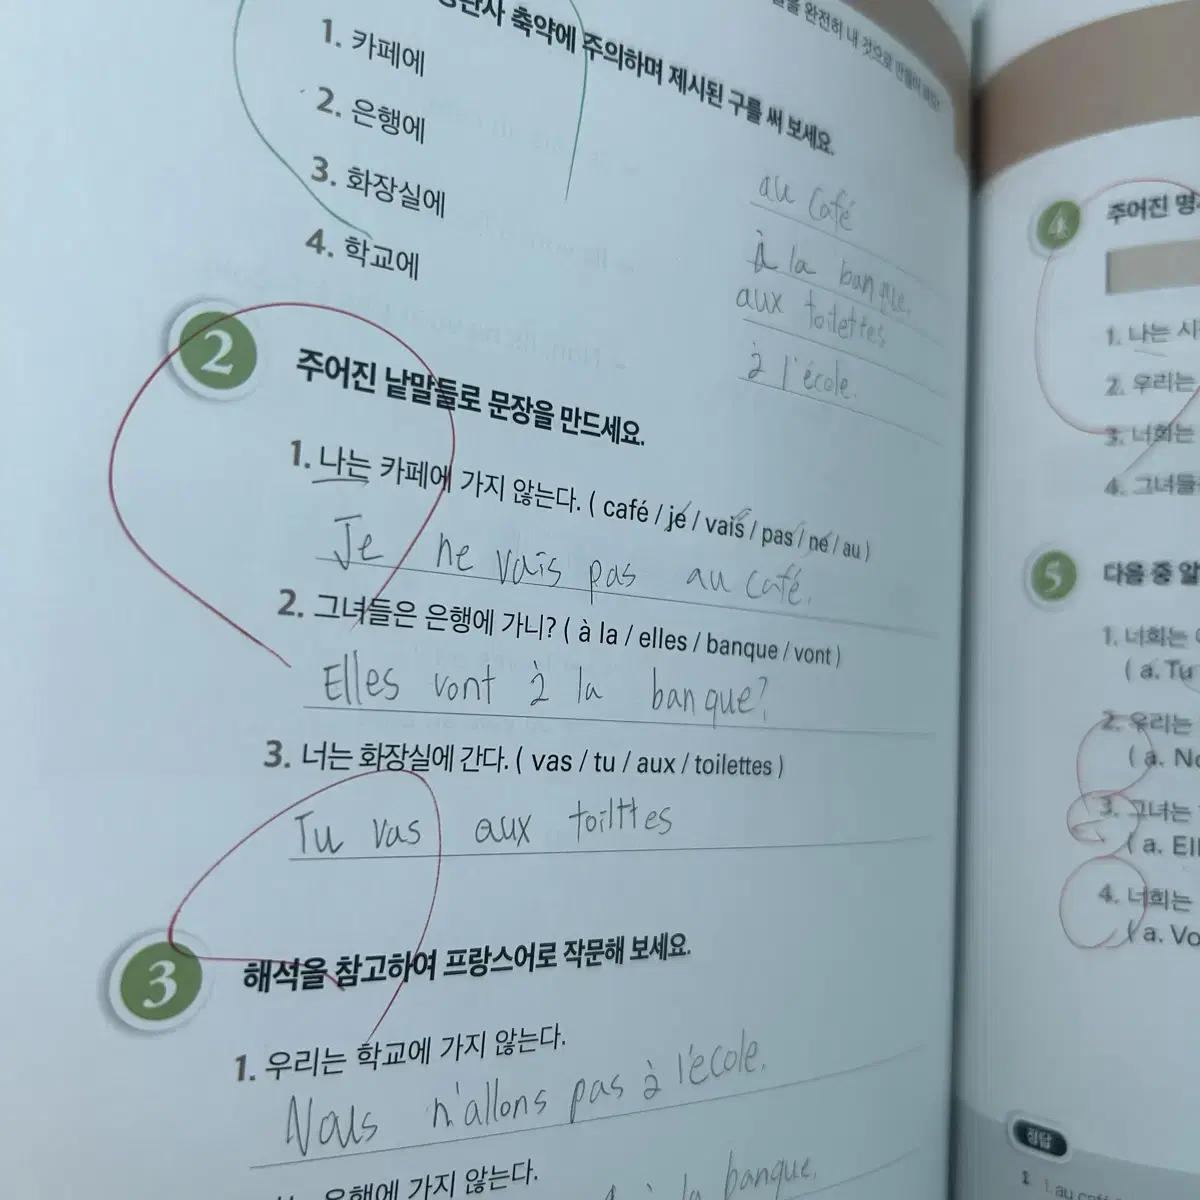 축약에 주의하며 제시된 구를 써 보세요.
1. 카페에
au café
2. 은행에
à la banque.
3. 화장실에
aux toilettes
4. 학교에
à l'école.
2
주어진 낱말들로 문장을 만드세요.
1. 나는 카페에 가지 않는다. ( café / je / vais / pas / ne / au )
Je ne vais pas au café.
2. 그녀들은 은행에 가니? ( à la / elles / banque / vont )
Elles vont à la banque?
3. 너는 화장실에 간다. ( vas / tu / aux / toilettes )
Tu vas aux toilttes
3
해석을 참고하여 프랑스어로 작문해 보세요.
1. 우리는 학교에 가지 않는다.
Nous n'allons pas à l'école.
은행에 가지 않는다.
à la banque.
4
주어진
1. 나는
2. 우리는
3. 너희는
4. 그녀들
5
다음 중
1. 너희는
( a. Tu
2. 우리는
( a. No
3. 그녀는
( a. Ell
4. 너희는
( a. Vo
정답
1 1 au